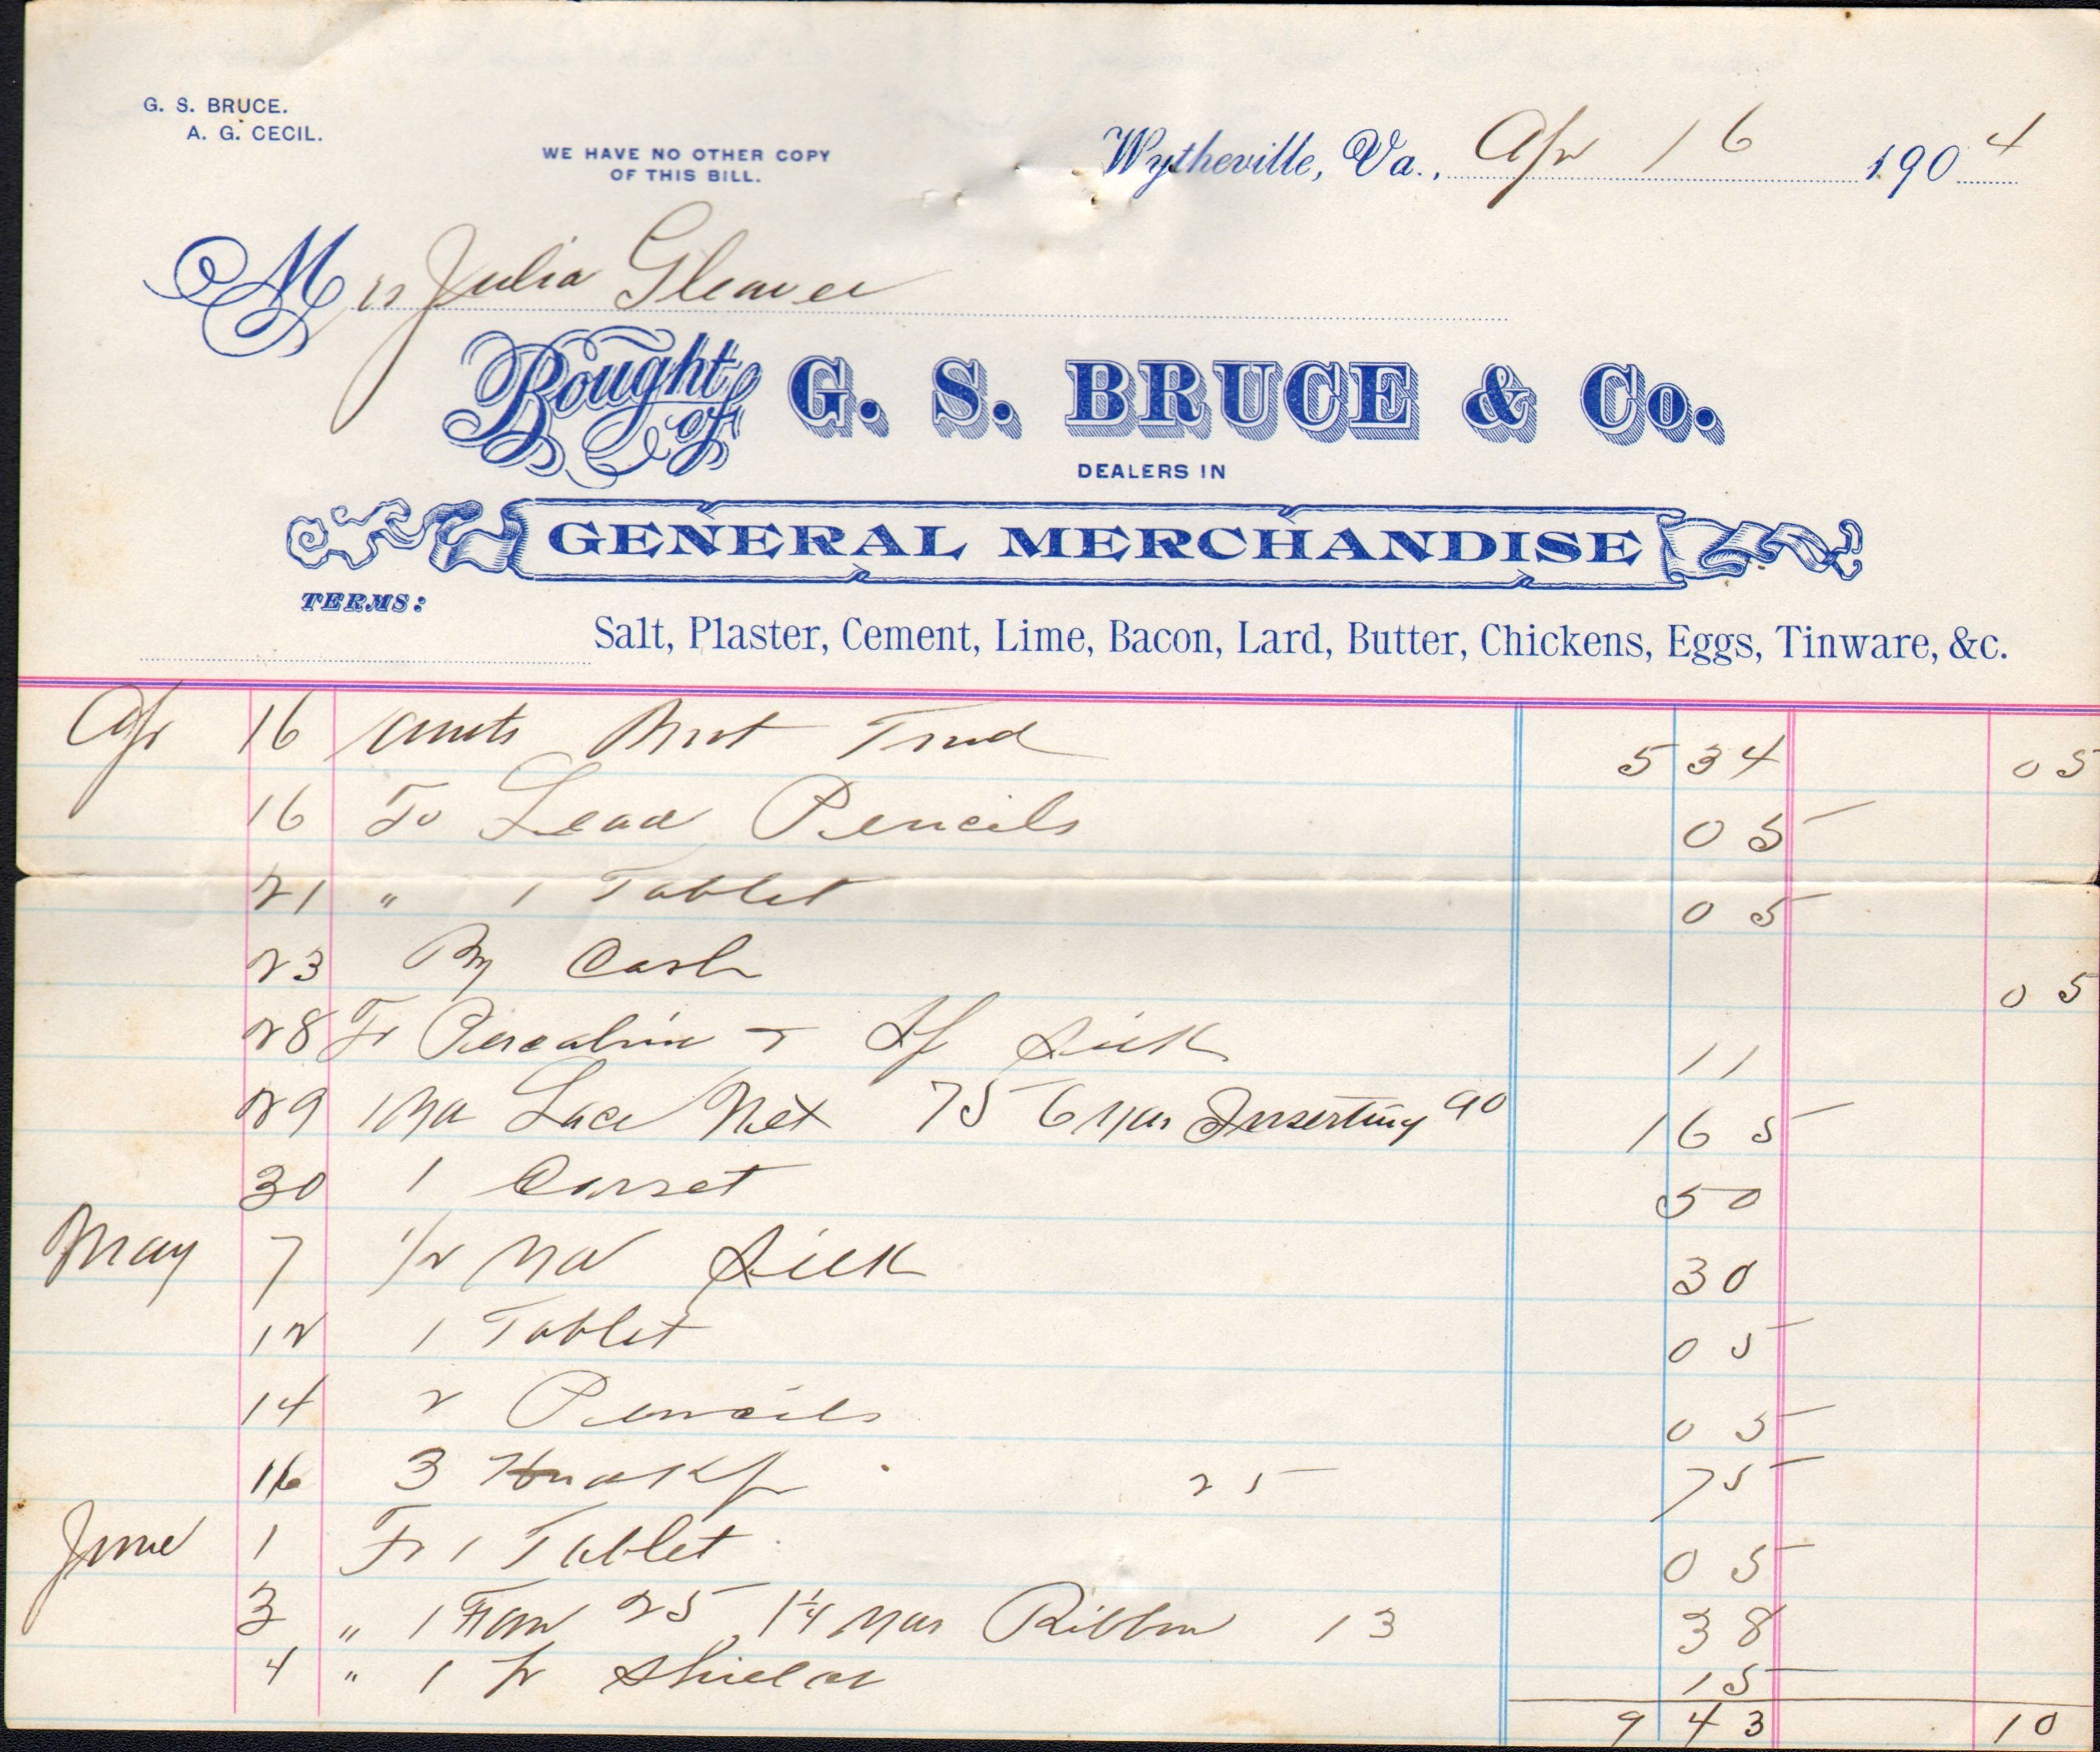 G. S. BRUCE.
A. G. CECIL.
WE HAVE NO OTHER COPY
OF THIS BILL.
Wytheville, Va., Apr 16 1904
Mrs Julia Gleaver
Bought of G. S. BRUCE & Co.
DEALERS IN
GENERAL MERCHANDISE
TERMS:
Salt, Plaster, Cement, Lime, Bacon, Lard, Butter, Chickens, Eggs, Tinware, &c.
Apr 16 Amts 5 34 05
16 To Lead Pencils 05
21 " 1 Tablet 05
23 By Cash 05
28 To Percaline & Silk 11
29 1 Yd Lace Net 75 6 Yds Inserting 90 1 65
30 1 Corset 50
May 7 1/2 Yd Silk 30
12 1 Tablet 05
14 2 Pencils 05
16 3 Hndkf 25 75
June 1 To 1 Tablet 05
3 " 1 Fan 25 1 1/4 Yds Ribbon 13 38
4 " 1 Pr Shields 15
9 43 10